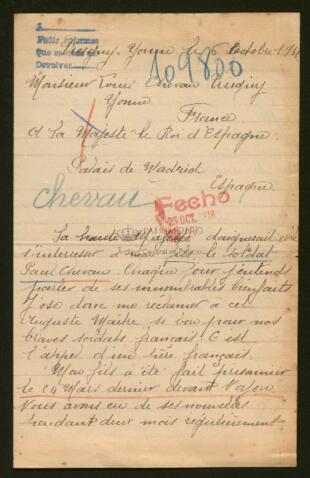 Pedir informes
Que
Devolver
Yonne le 6 Octobre 1918
109800
Monsieur Louis Chevau
Yonne
France.
A Sa Majesté le Roi d'Espagne.
Palais de Madrid.
Espagne.
Chevau
Fecho
25 OCT. 1918
PATRIMONIO
Sa haute daignerait elle
s'interesser à le soldat
Paul Chevau. Chaque jour j'entends
parler de ses innombrables bienfaits
J'ose donc me réclamer à cet
Auguste Maître si bon pour nos
braves soldats français. C'est
d'un père français.
Mon fils a été fait prisonnier
le 24 Mars dernier devant Noyon.
Nous avons eu de ses nouvelles
pendant deux mois régulièrement